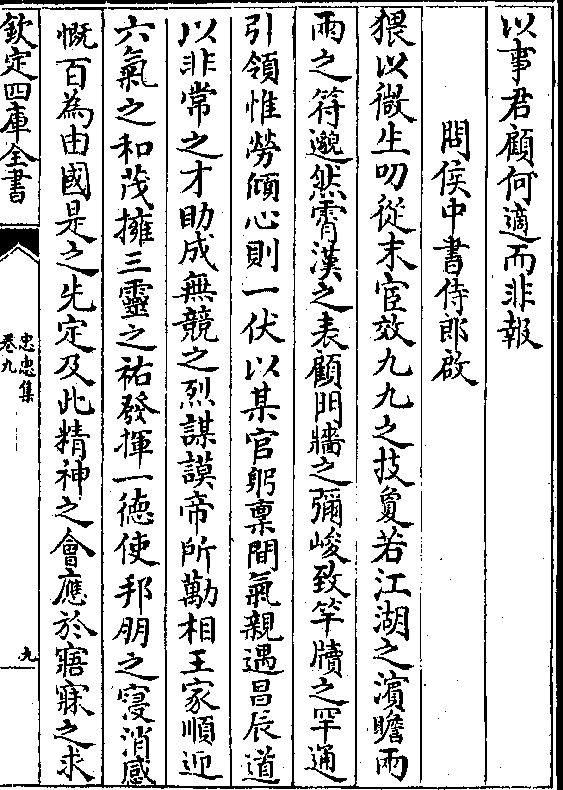 以事君顧何適而非報
問侯中書侍郎啟
猥以微生叨從末宦效九九之技敻若江湖之濱瞻兩
兩之符邈然霄漢之表顧門牆之彌峻致竿牘之罕通
引領惟勞傾心則一伏以某官躬稟間氣親遇昌辰道
以非常之才助成無競之烈謀謨帝所勱相王家順迎
六氣之和茂擁三靈之祐發揮一德使邦朋之寖消感
慨百為由國是之先定及此精神之會應於寤寐之求
欽定四庫全書
忠惠集
卷九
九